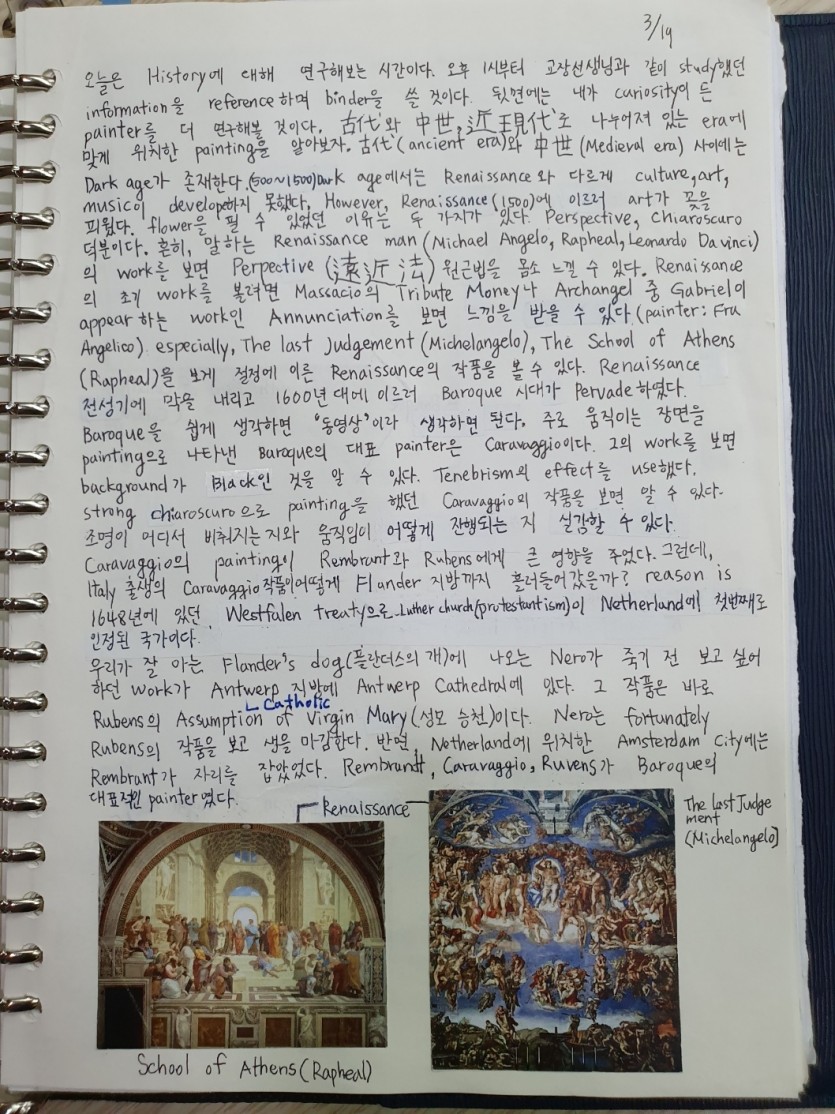 3/19
오늘은 History에 대해 연구해보는 시간이다. 오후 1시부터 교장선생님과 같이 study했던
information을 reference하며 binder을 쓸 것이다. 뒷면에는 내가 curiosity이 든
painter를 더 연구해볼 것이다. 古代와 中世, 近現代로 나누어져 있는 era에
맞게 위치한 painting을 알아보자. 古代(ancient era)와 中世(Medieval era) 사이에는
Dark age가 존재한다.(500~1500)Dark age에서는 Renaissance와 다르게 culture, art,
music이 develop하지 못했다. However, Renaissance(1500)에 이르러 art가 꽃을
피웠다. flower을 필 수 있었던 이유는 두 가지가 있다. Perspective, Chiaroscuro
덕분이다. 흔히, 말하는 Renaissance man(Michael Angelo, Rapheal, Leonardo Da vinci)
의 work를 보면 Perpective(遠近法) 원근법을 몸소 느낄 수 있다. Renaissance
의 초기 work를 볼려면 Massacio의 Tribute Money나 Archangel 중 Gabriel이
appear하는 work인 Annunciation를 보면 느낌을 받을 수 있다.(painter: Fra
Angelico) especially, The last Judgement(Michelangelo), The School of Athens
(Rapheal)을 보게 절정에 이른 Renaissance의 작품을 볼 수 있다. Renaissance
전성기에 막을 내리고 1600년대에 이르러 Baroque 시대가 Pervade하였다.
Baroque을 쉽게 생각하면 '동영상'이라 생각하면 된다. 주로 움직이는 장면을
painting으로 나타낸 Baroque의 대표 painter은 Caravaggio이다. 그의 work를 보면
background가 Black인 것을 알 수 있다. Tenebrism의 effect를 use했다.
strong chiaroscuro으로 painting을 했던 Caravaggio의 작품을 보면 알 수 있다.
조명이 어디서 비춰지는지와 움직임이 어떻게 진행되는 지 실감할 수 있다.
Caravaggio의 painting이 Rembrant과 Rubens에게 큰 영향을 주었다. 그런데,
Italy 출생의 Caravaggio작품이어떻게 Flander 지방까지 흘러들어갔을까? reason is
1648년에 있던 Westfalen treaty으로 Luther church(protestantism)이 Netherland에 첫번째로
인정된 국가이다.
우리가 잘 아는 Flander's dog(플란더스의 개)에 나오는 Nero가 죽기 전 보고 싶어
하던 work가 Antwerp 지방에 Antwerp Cathedral에 있다. 그 작품은 바로
Catholic
Rubens의 Assumption of Virgin Mary(성모 승천)이다. Nero는 fortunately
Rubens의 작품을 보고 생을 마감한다. 반면, Netherland에 위치한 Amsterdam City에는
Rembrant가 자리를 잡았었다. Rembrandt, Caravaggio, Ruvens가 Baroque의
대표적인 painter였다.
Renaissance
The last Judge
ment
(Michelangelo)
School of Athens(Rapheal)